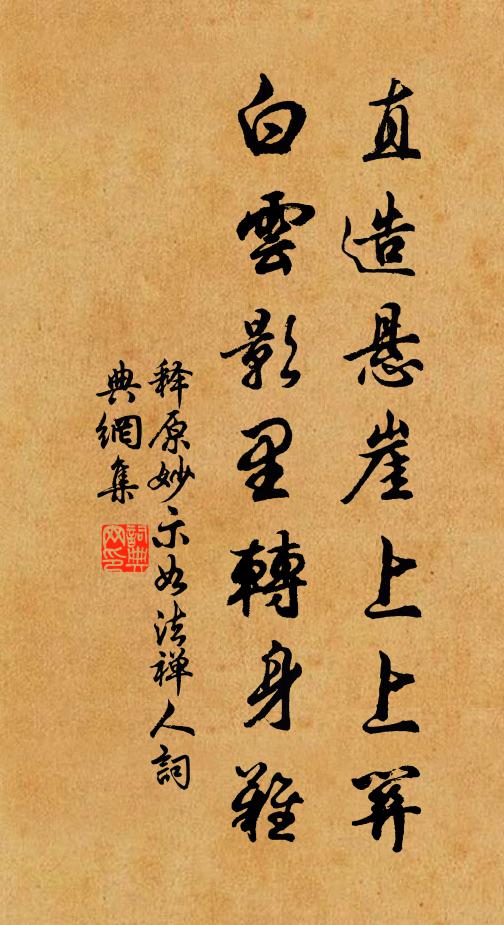 直造悬崖上上關
白雲影里轉身難
释原妙示如法禅人詞
典網集
詞典
网印